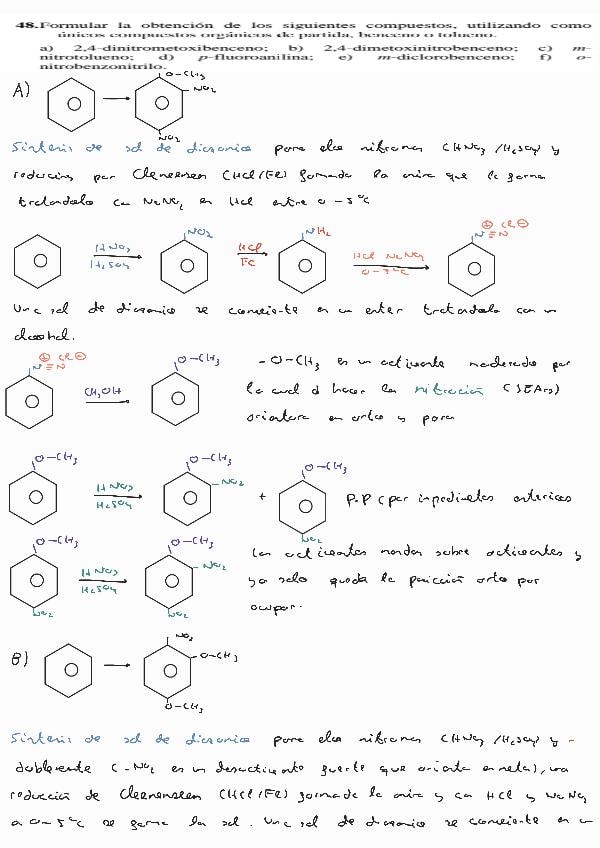 48.Formular la obtención de los siguientes compuestos, utilizando como
únicos compuestos orgánicos de partida, benceno o tolueno.
a) 2,4-dinitrometoxibenceno; b) 2,4-dimetoxinitrobenceno; c) m-
nitrotolueno; d) p-fluoroanilina; e) m-diclorobenceno; f) o-
nitrobenzonitrilo.
A)
O-CH3
NO2
NO2
Síntesis de sal de diazonio para ello nitramos (HNO3/H2SO4) y
reducimos por Clemensen (HCl/Fe) formando la amina que le
tratandola con NaNO2 en HCl entre 0-5ºC
HNO3
H2SO4
NO2
HCl
Fe
NH2
HCl NaNO2
0-5ºC
N≡N
⊕ Cl⊖
Una sal de diazonio se convierte en un eter tratandola con un
alcohol.
⊕ Cl⊖
N≡N
CH3OH
O-CH3
-O-CH3 es un activante moderado por
lo cual al hacer la nitración (SEAr)
orientara en orto y para
O-CH3
HNO3
H2SO4
O-CH3
NO2
+
O-CH3
NO2
P.P (por impedimetos estericos
O-CH3
NO2
HNO3
H2SO4
O-CH3
NO2
NO2
Los activantes mandan sobre desactivantes y
ya solo queda la posición orto por
ocupar.
B)
NO2
O-CH3
O-CH3
Síntesis de sal de diazonio para ello nitramos (HNO3/H2SO4) y
doblemente (-NO2 es un desactivante fuerte que orienta en meta), una
reducción de Clemensen (HCl/Fe) formando la amina y con HCl y NaNO2
a 0-5ºC se forma la sal. Una sal de diazonio se convierte en un